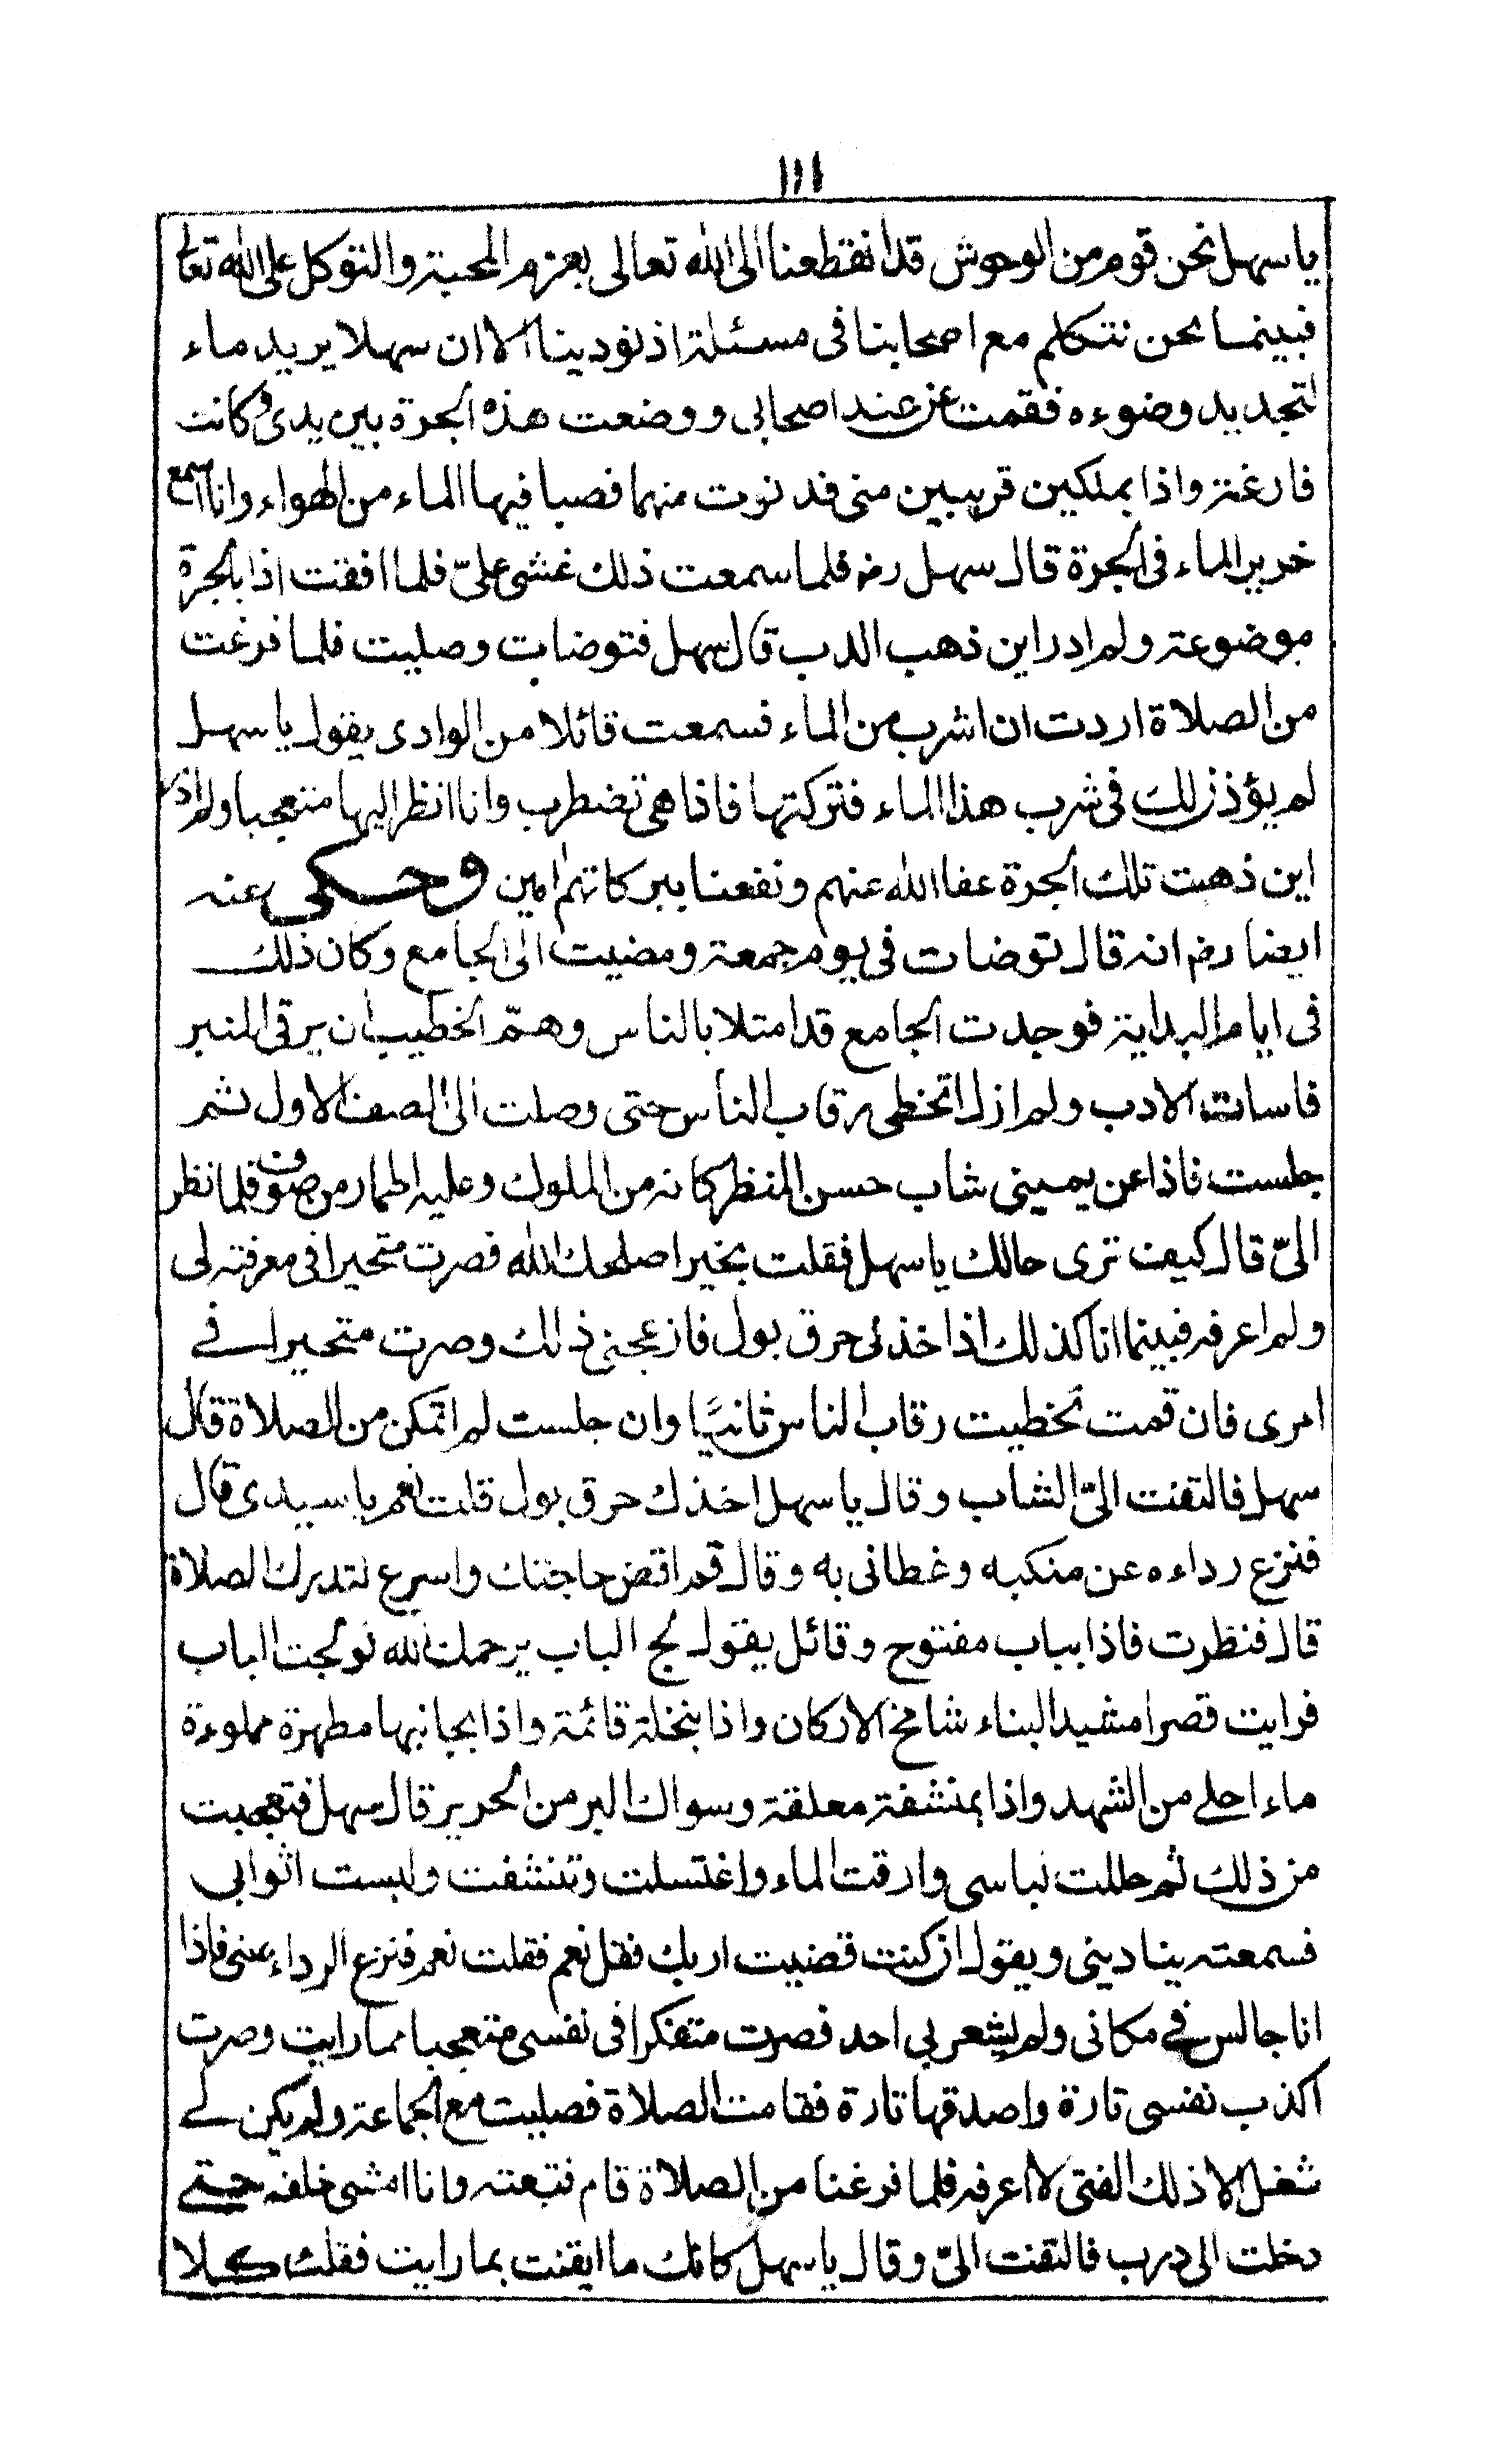 ١١١
ياسهل نحن قوم من الوحوش قد انقطعنا الى الله تعالى بعزم المحبة والتوكل على الله تعالى
فبينما نحن نتكلم مع اصحابنا فى مسئلة اذ نودينا الا ان سهلا يريد ماء
لتجديد وضوءه فقمت عن عند اصحابى ووضعت هذه الجرة بين يدى وكانت
فارغة واذا بملكين قريبين منى فدنوت منهما فصبا فيها الماء من الهواء وانا اسمع
خرير الماء فى الجرة قال سهل رض فلما سمعت ذلك غشى علىّ فلما افقت اذا بالجرة
موضوعة ولم ادر اين ذهب الدب قال سهل فتوضات وصليت فلما فرغت
من الصلاة اردت ان اشرب من الماء فسمعت قائلا من الوادى يقول ياسهل
لم يؤذن لك فى شرب هذا الماء فتركتها فاذا هى تضطرب وانا انظر اليها متعجبا ولم ادر
اين ذهبت تلك الجرة عفا الله عنهم ونفعنا ببركاتهم امين وحكى عنه
ايضا رض انه قال توضات فى يوم جمعة ومضيت الى الجامع وكان ذلك
فى ايام البداية فوجدت الجامع قد امتلا بالناس وهمّ الخطيب ان يرقى المنبر
فاسات الادب ولم ازل اتخطى رقاب الناس حتى وصلت الى الصف الاول ثم
جلست فاذا عن يمينى شاب حسن المنظر كانه من الملوك وعليه اطمار من صوف فلما نظر
الىّ قال كيف ترى حالك ياسهل فقلت بخير اصلحك الله فصرت متحيرا فى معرفته لى
ولم اعرفه فبينما انا كذلك اذ اخذنى حرق بول فازعجنى ذلك وصرت متحيرا فى
امرى فان قمت تخطيت رقاب الناس ثانيًا وان جلست لم اتمكن من الصلاة قال
سهل فالتفت الىّ الشاب وقال ياسهل اخذك حرق بول قلت نعم ياسيدى قال
فنزع رداءه عن منكبه وغطانى به وقال قم اقض حاجتك واسرع لتدرك الصلاة
قال فنظرت فاذا بباب مفتوح وقائل يقول لج الباب يرحمك الله فولجت الباب
فرايت قصرا مشيد البناء شامخ الاركان واذا بنخلة قائمة واذا بجانبها مطهرة مملوءة
ماء احلى من الشهد واذا بمنشفة معلقة وسواك البر من الحرير قال سهل فتعجبت
من ذلك ثم حللت لباسى وارقت الماء واغتسلت وتنشفت ولبست اثوابى
فسمعته ينادينى ويقول ان كنت قضيت اربك فقل نعم فقلت نعم فنزع الرداء عنى فاذا
انا جالس فى مكانى ولم يشعر بى احد فصرت متفكرا فى نفسى متعجبا مما رايت وصرت
اكذب نفسى تارة واصدقها تارة فقامت الصلاة فصليت مع الجماعة ولم يكن لى
شغل الا ذلك الفتى لا اعرفه فلما فرغنا من الصلاة قام فتبعته وانا امشى خلفه حتى
دخلت الى درب فالتفت الىّ وقال ياسهل كانك ما ايقنت بما رايت فقلت كلا